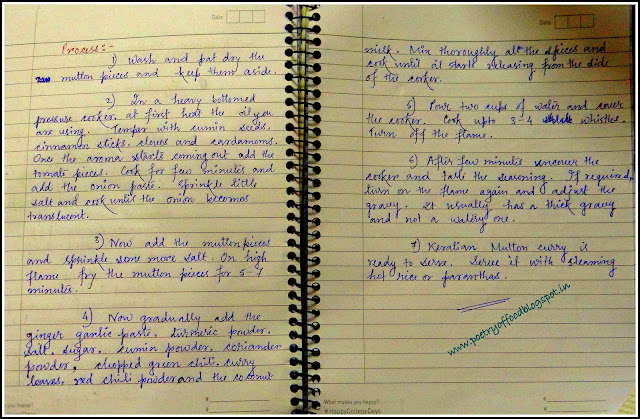 Date
Process:-
1) Wash and pat dry the
mutton pieces and keep them aside.
2) In a heavy bottomed
pressure cooker, at first heat the oil you
are using. Temper with cumin seeds,
cinnamon sticks, cloves and cardamoms.
Once the aroma starts coming out add the
tomato pieces. Cook for few minutes and
add the onion paste. Sprinkle little
salt and cook until the onion becomes
translucent.
3) Now add the mutton pieces
and sprinkle some more salt. On high
flame fry the mutton pieces for 5-7
minutes.
4) Now gradually add the
ginger garlic paste, turmeric powder,
salt, sugar, cumin powder, coriander
powder, chopped green chili, curry
leaves, red chili powder and the coconut
you happy?
Date
milk. Mix thoroughly all the spices and
cook until it starts releasing from the side
of the cooker.
5) Pour two cups of water and cover
the cooker. Cook upto 3-4 whistles.
Turn off the flame.
6) After few minutes uncover the
cooker and taste the seasoning. If required,
turn on the flame again and adjust the
gravy. It usually has a thick gravy
and not a watery one.
7) Keralian Mutton curry is
ready to serve. Serve it with steaming
hot rice or paranthas.
www.poetryoffood.blogspot.in
What makes you happy?
#HappyCollegeDays